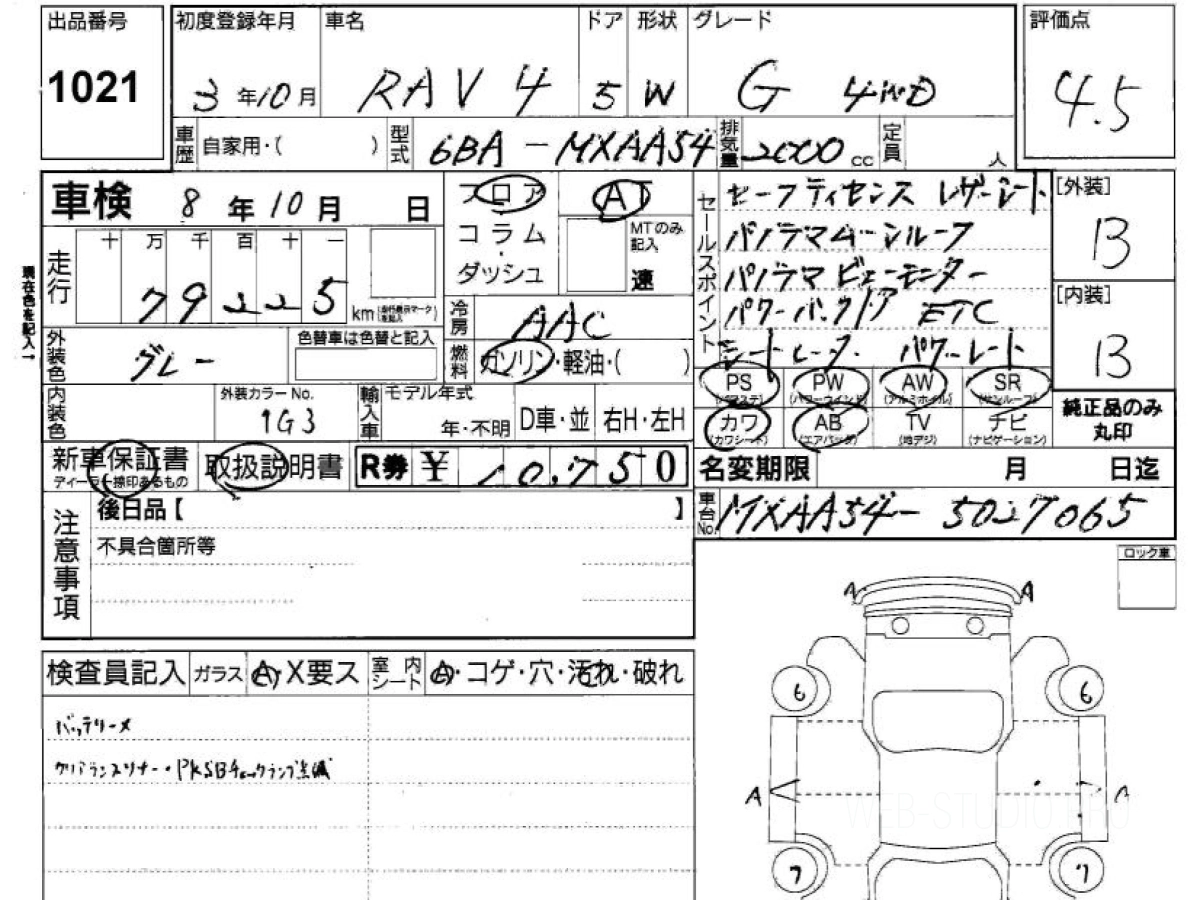 出品番号 初度登録年月 車名 ドア 形状 グレード 評価点
1021 3年10月 RAV4 5 W G 4WD 4.5
車歴 自家用・( ) 型式 6BA-MXAA54 排気量 2000cc 定員 人
車検 8年10月 日 フロア AT セールスポイント セーフティセンス レザーシート [外装]
コラム MTのみ記入 パノラマムーンルーフ B
現在色を記入→ 走行 十 万 千 百 十 一 ダッシュ 速 パノラマビューモニター
79225 km (走行表示マーク を記入) 冷房 AAC パワーバックドア ETC [内装]
外装色 グレー 色替車は色替と記入 燃料 ガソリン・軽油・( ) シートヒーター パワーシート B
内装色 外装カラーNo. 輸入車 モデル年式 PS PW AW SR
1G3 年・不明 D車・並 右H・左H (パワステ) (パワーウインド) (アルミホイル) (サンルーフ) 純正品のみ
カワ AB TV ナビ 丸印
(カワシート) (エアバッグ) (地デジ) (ナビゲーション)
新車保証書 取扱説明書 R券 ¥ 10,750 名変期限 月 日迄
ディーラー捺印あるもの
注意事項 後日品【 】 車台No. MXAA54-5027065
不具合箇所等 ロック車
A A
検査員記入 ガラス A・X要ス 室内シート A・コゲ・穴・汚れ・破れ
6 6
バッテリーメ
クリアランスソナー・PKSBチェックランプ点滅
A
WEB-STUDIO PRO
7 7